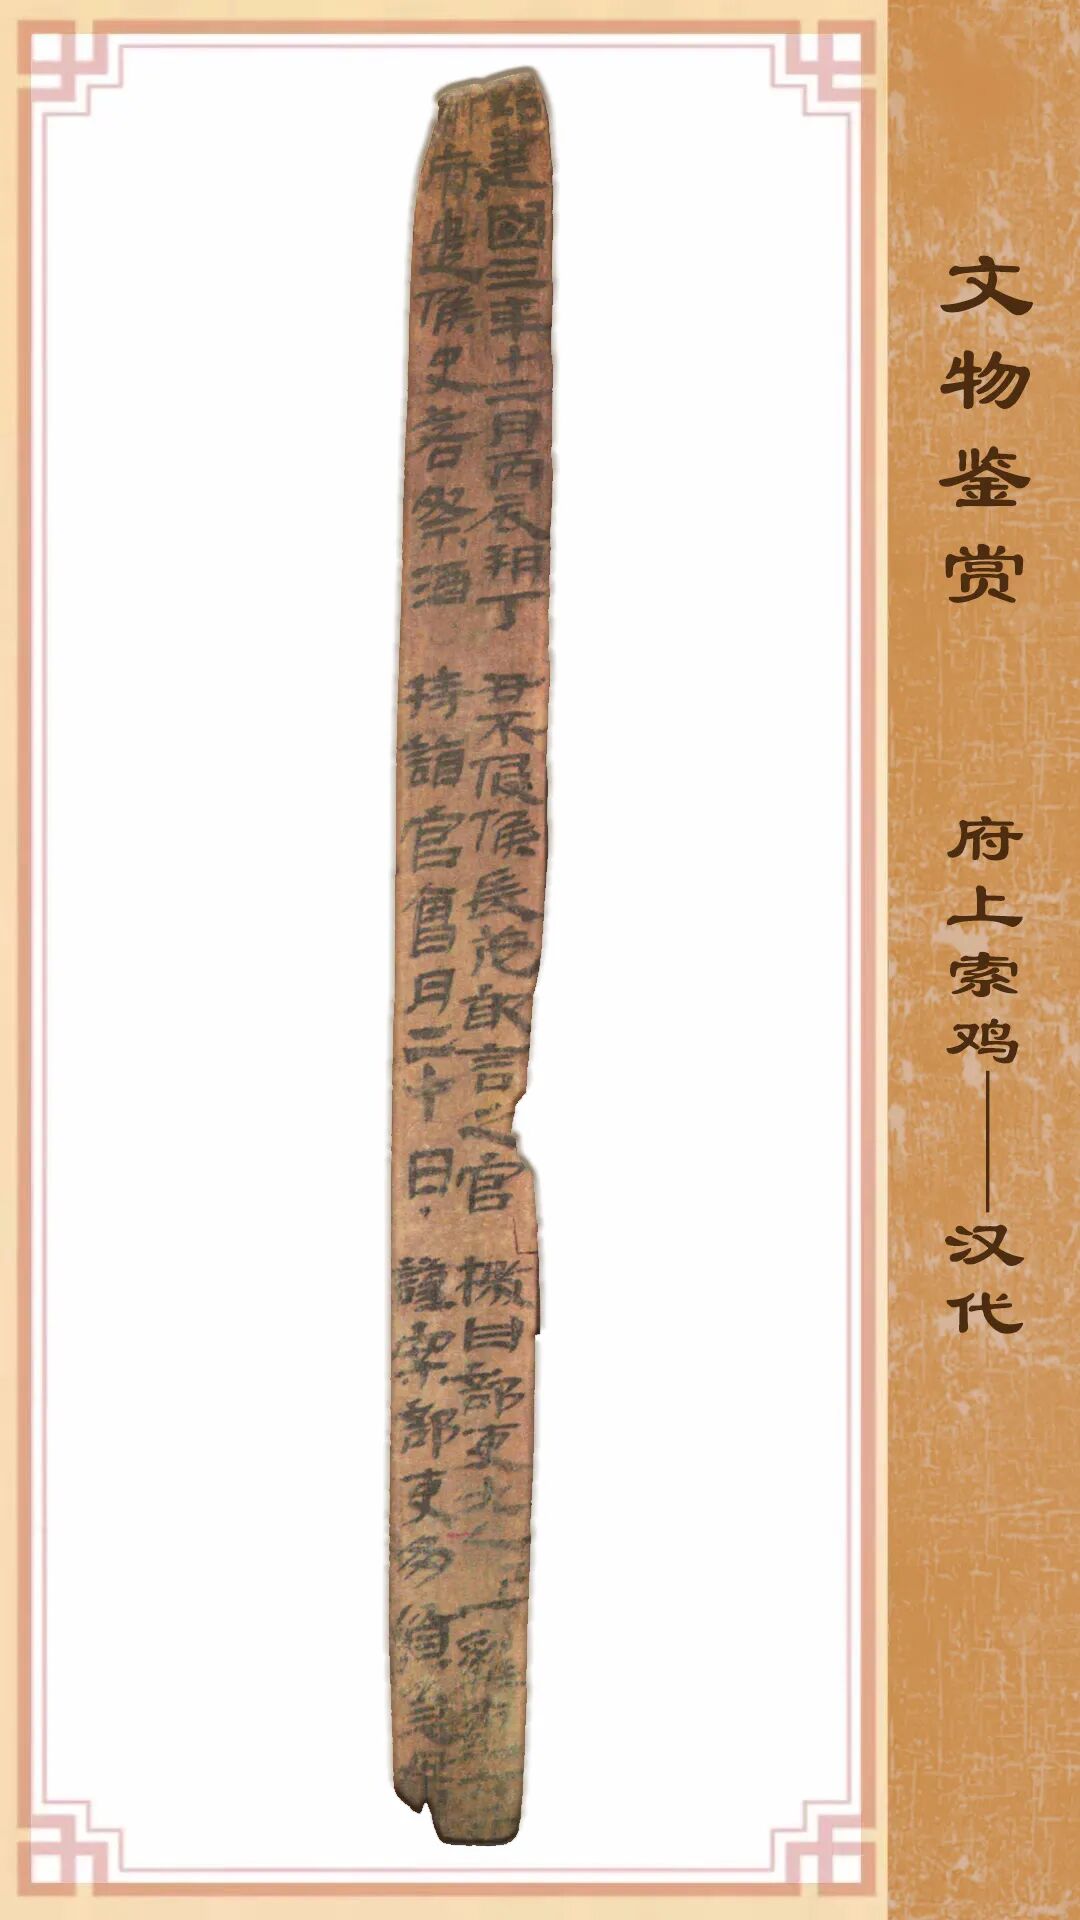 始建國三年十二月丙辰朔丁 丑不侵候長茂敢言之官 檄曰部吏九人一人一雞
府遣候史若祭酒 持詣官會月二十日 謹案部吏多貧急毋
文物鉴赏
府上索鸡——汉代